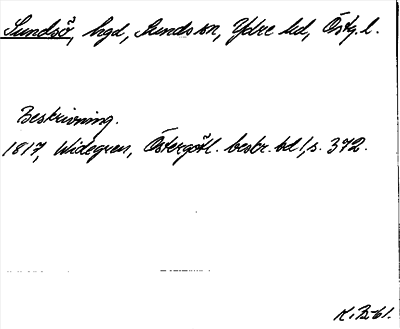 Sundsö, hgd, Sunds sn, Ydre hd, Östg. l.
Beskrivning.
1817, Widegren, Östergötl. beskr. bd 1, s. 372.
K. Bibl.